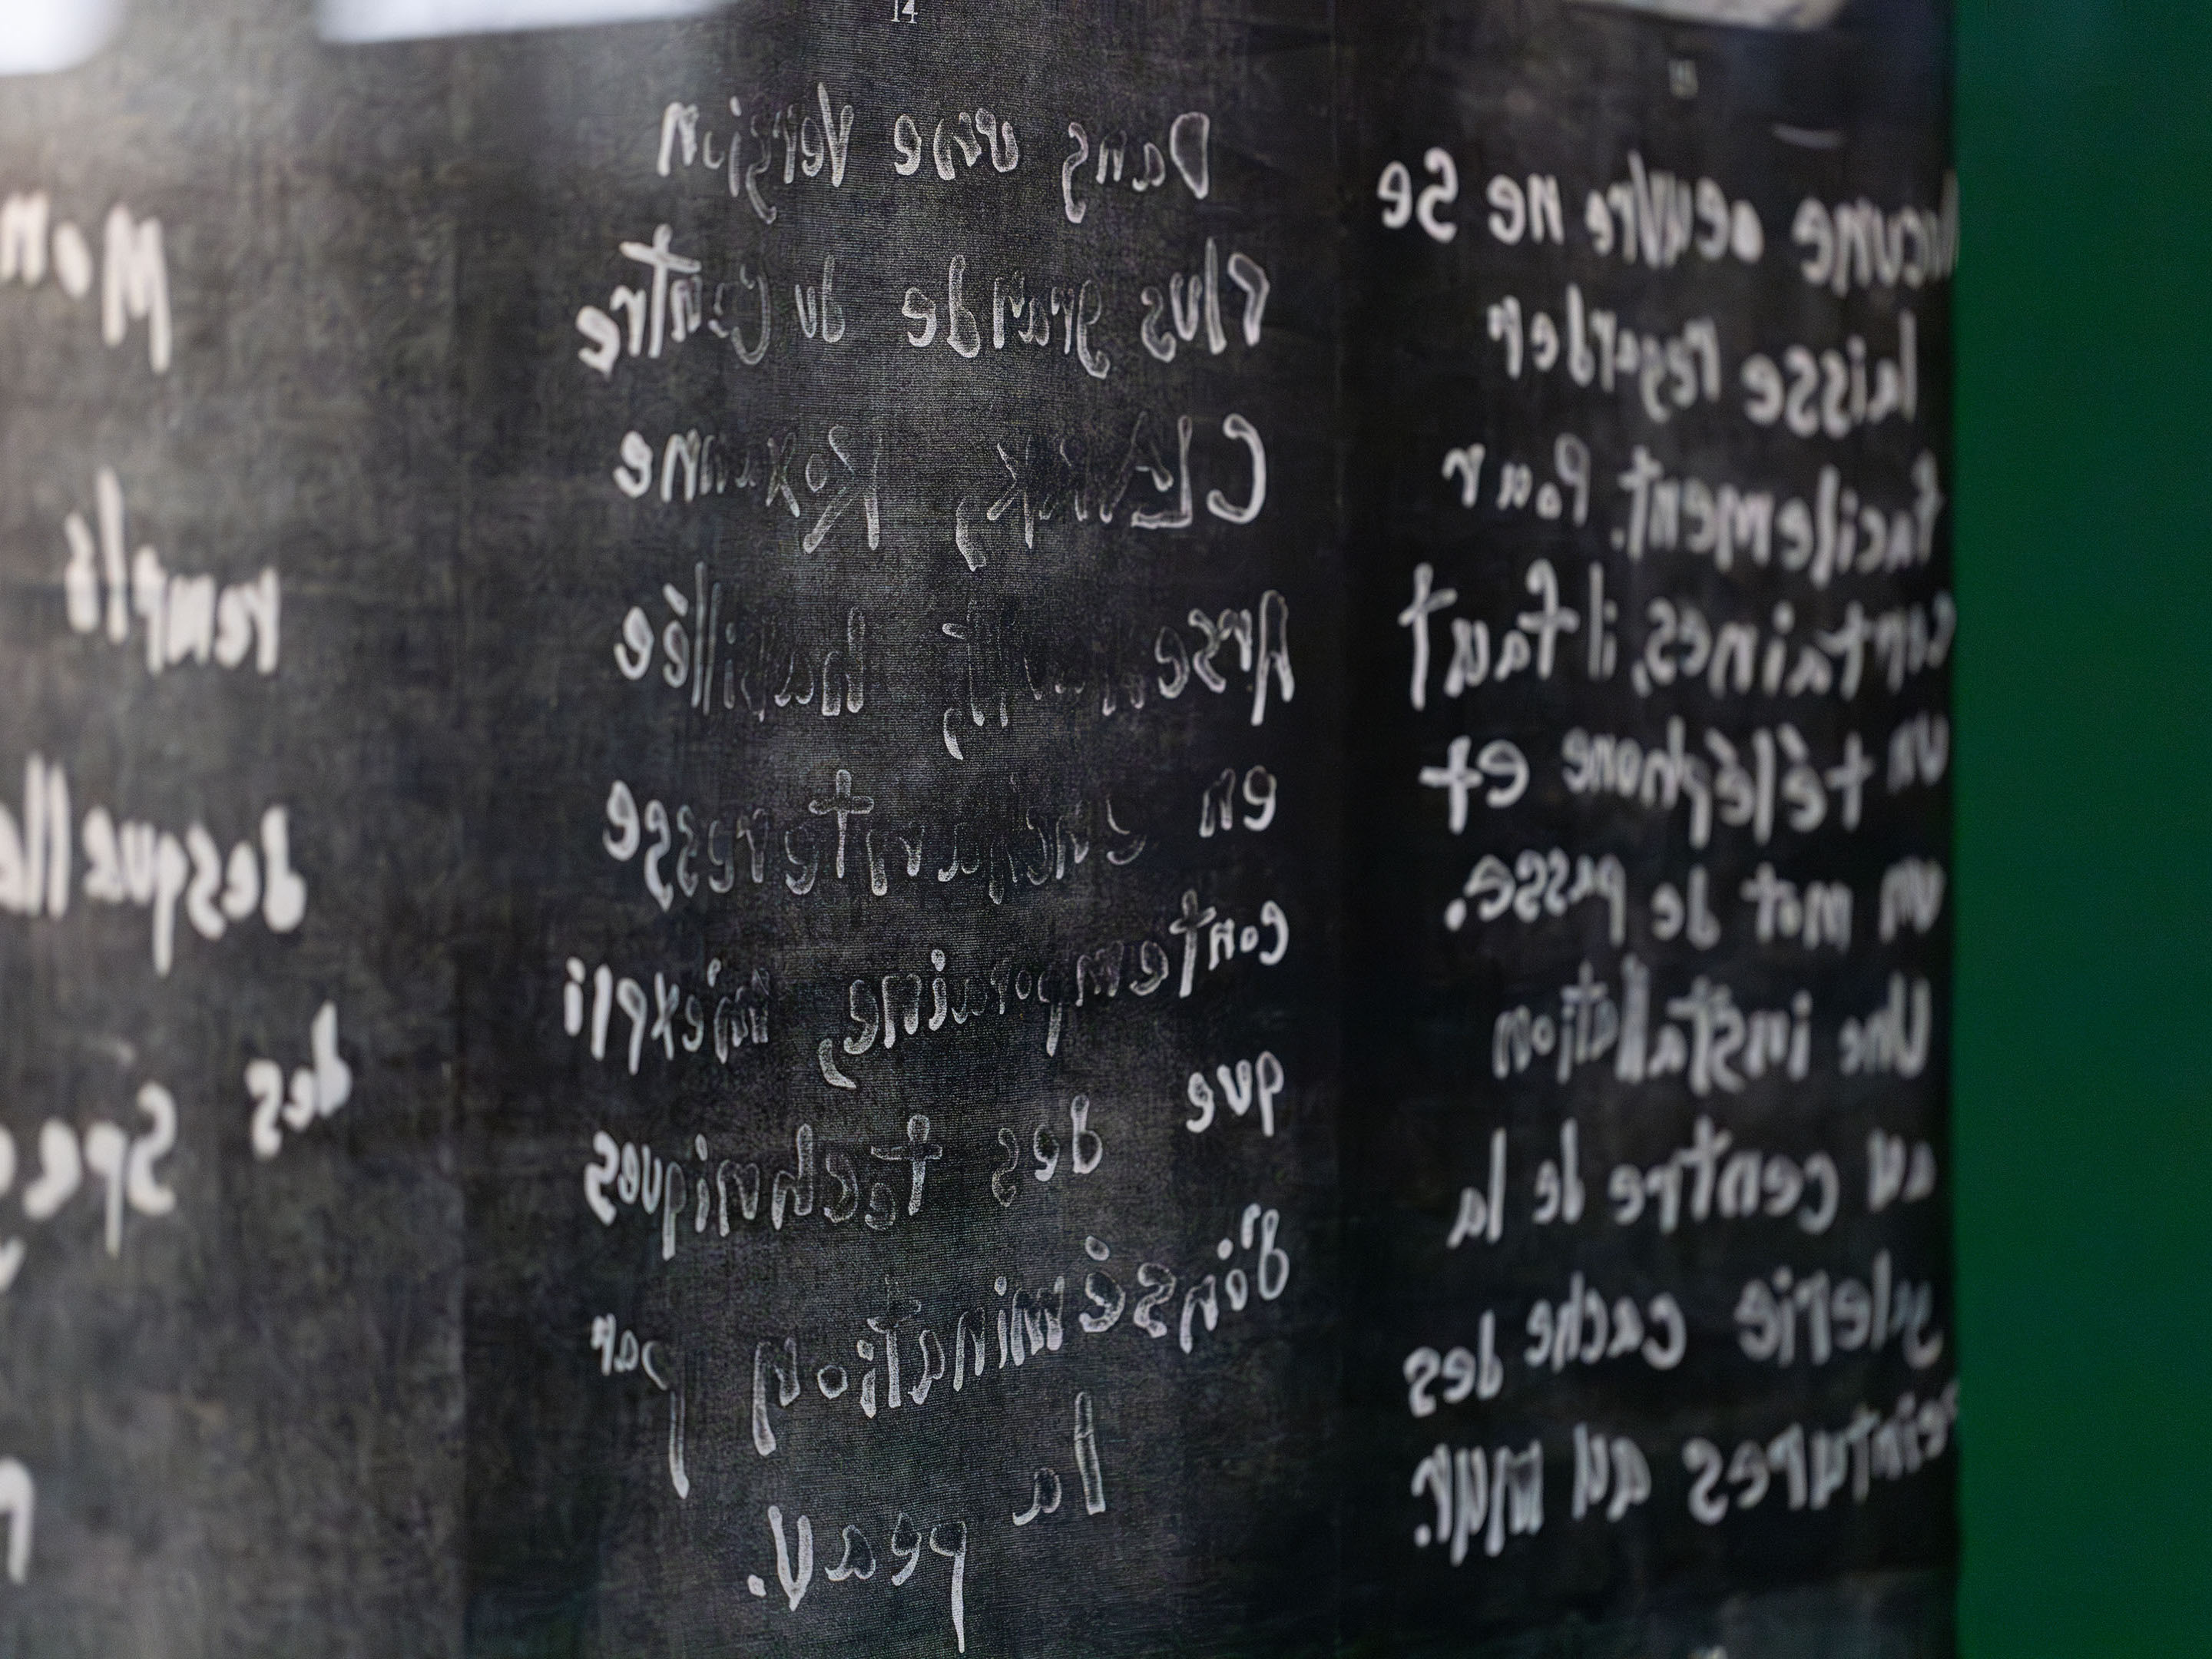 14
Dans une version
plus grande du Centre
CLARK, Roxanne
Arsenault, habillée
en
contemporaine, m'expli
que
des techniques
d'insémination par
la
peau.
ucune oeuvre ne se
laisse regarder
facilement. Pour
certaines, il faut
un téléphone et
un mot de passe.
Une installation
au centre de la
galerie cache des
peintures au mur.
Mon
remplis
desquelle
des
Spe